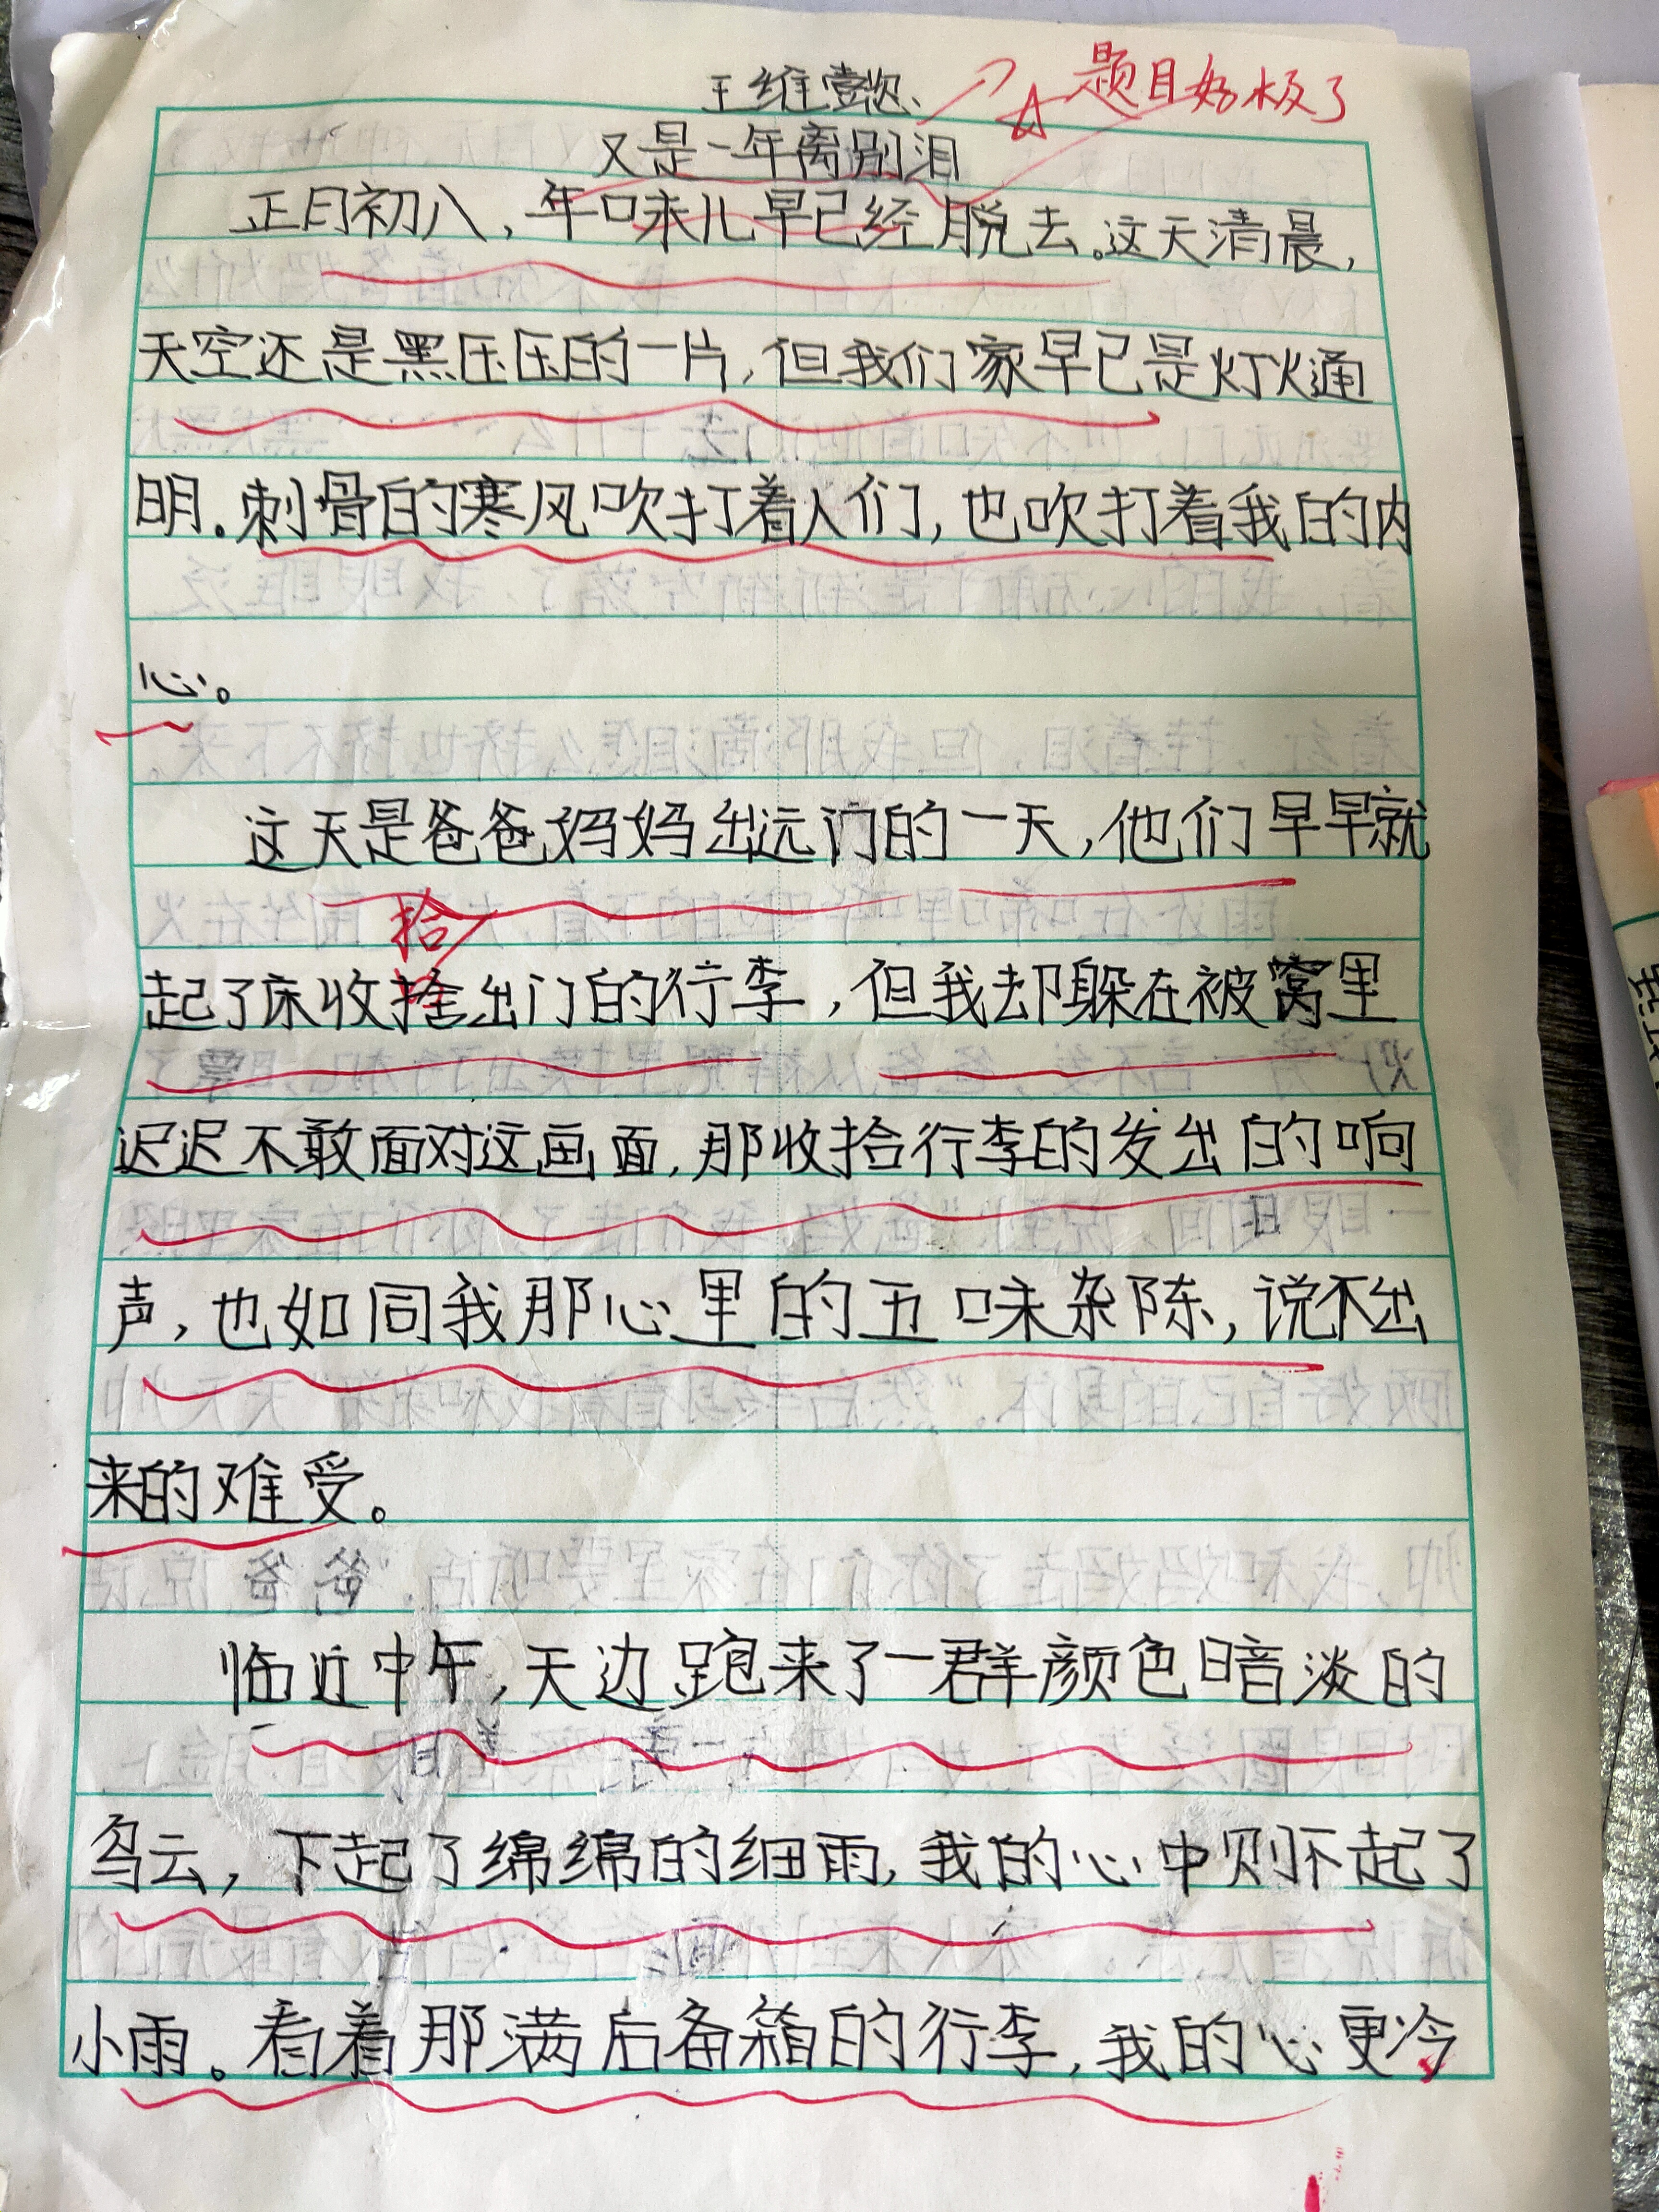 王维懿
题目好极了
又是一年离别泪
正月初八，年味儿早已经脱去。这天清晨，
天空还是黑压压的一片，但我们家早已是灯火通
明。刺骨的寒风吹打着人们，也吹打着我的内
心。
这天是爸爸妈妈出远门的一天，他们早早就
拾
起了床收捨出门的行李，但我却躲在被窝里
迟迟不敢面对这画面，那收拾行李的发出的响
声，也如同我那心里的五味杂陈，说不出
来的难受。
临近中午，天边跑来了一群颜色暗淡的
乌云，下起了绵绵的细雨，我的心中则下起了
小雨。看着那满后备箱的行李，我的心更冷